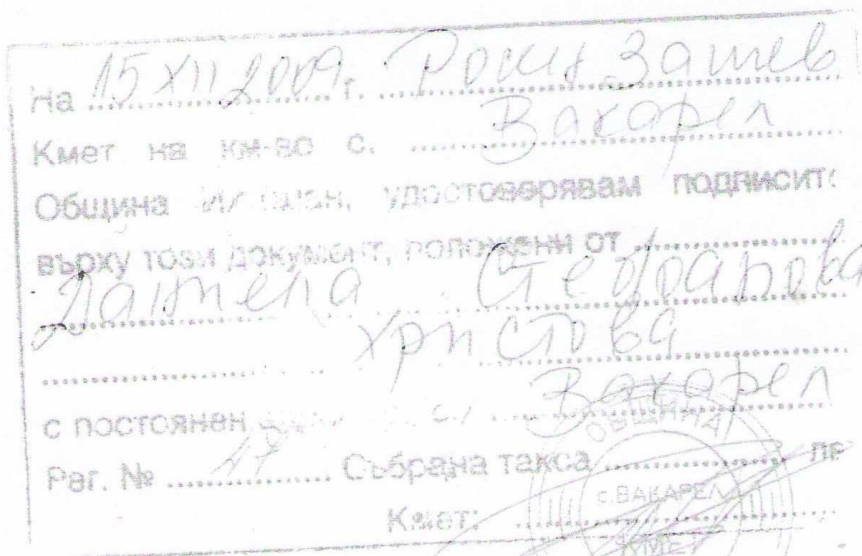 На 15 XII 2009 г. Роси Зашев
Кмет на км-во с. Вакарел
Община Ихтиман, удостоверявам подписите
върху този документ, положени от
Даниела Стефанова
Христова
с постоянен Вакарел
Рег. № 47 Събрана такса лв
Кмет:
ОБЩИНА
с. ВАКАРЕЛ
КМЕТ